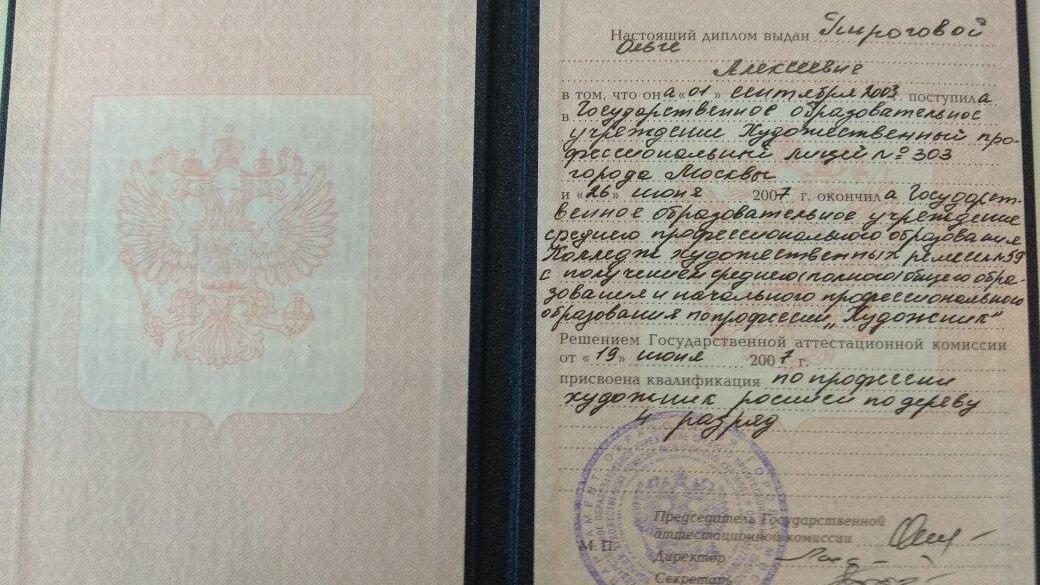 Настоящий диплом выдан Пироговой
Ольге
Алексеевне
в том, что она «01» сентября 2003 г. поступила
в Государственное образовательное
учреждение Художественный про-
фессиональный лицей № 303
города Москвы
и «26» июня 2007 г. окончила Государст-
венное образовательное учреждение
среднего профессионального образования
Колледж художественных ремесел №59
с получением среднего (полного) общего обра-
зования и начального профессионального
образования по профессии „Художник"
Решением Государственной аттестационной комиссии
от «19» июня 2007 г.
присвоена квалификация по профессии
художник росписи по дереву
4 разряд
Председатель Государственной
аттестационной комиссии
М. П.
Директор
Секретарь